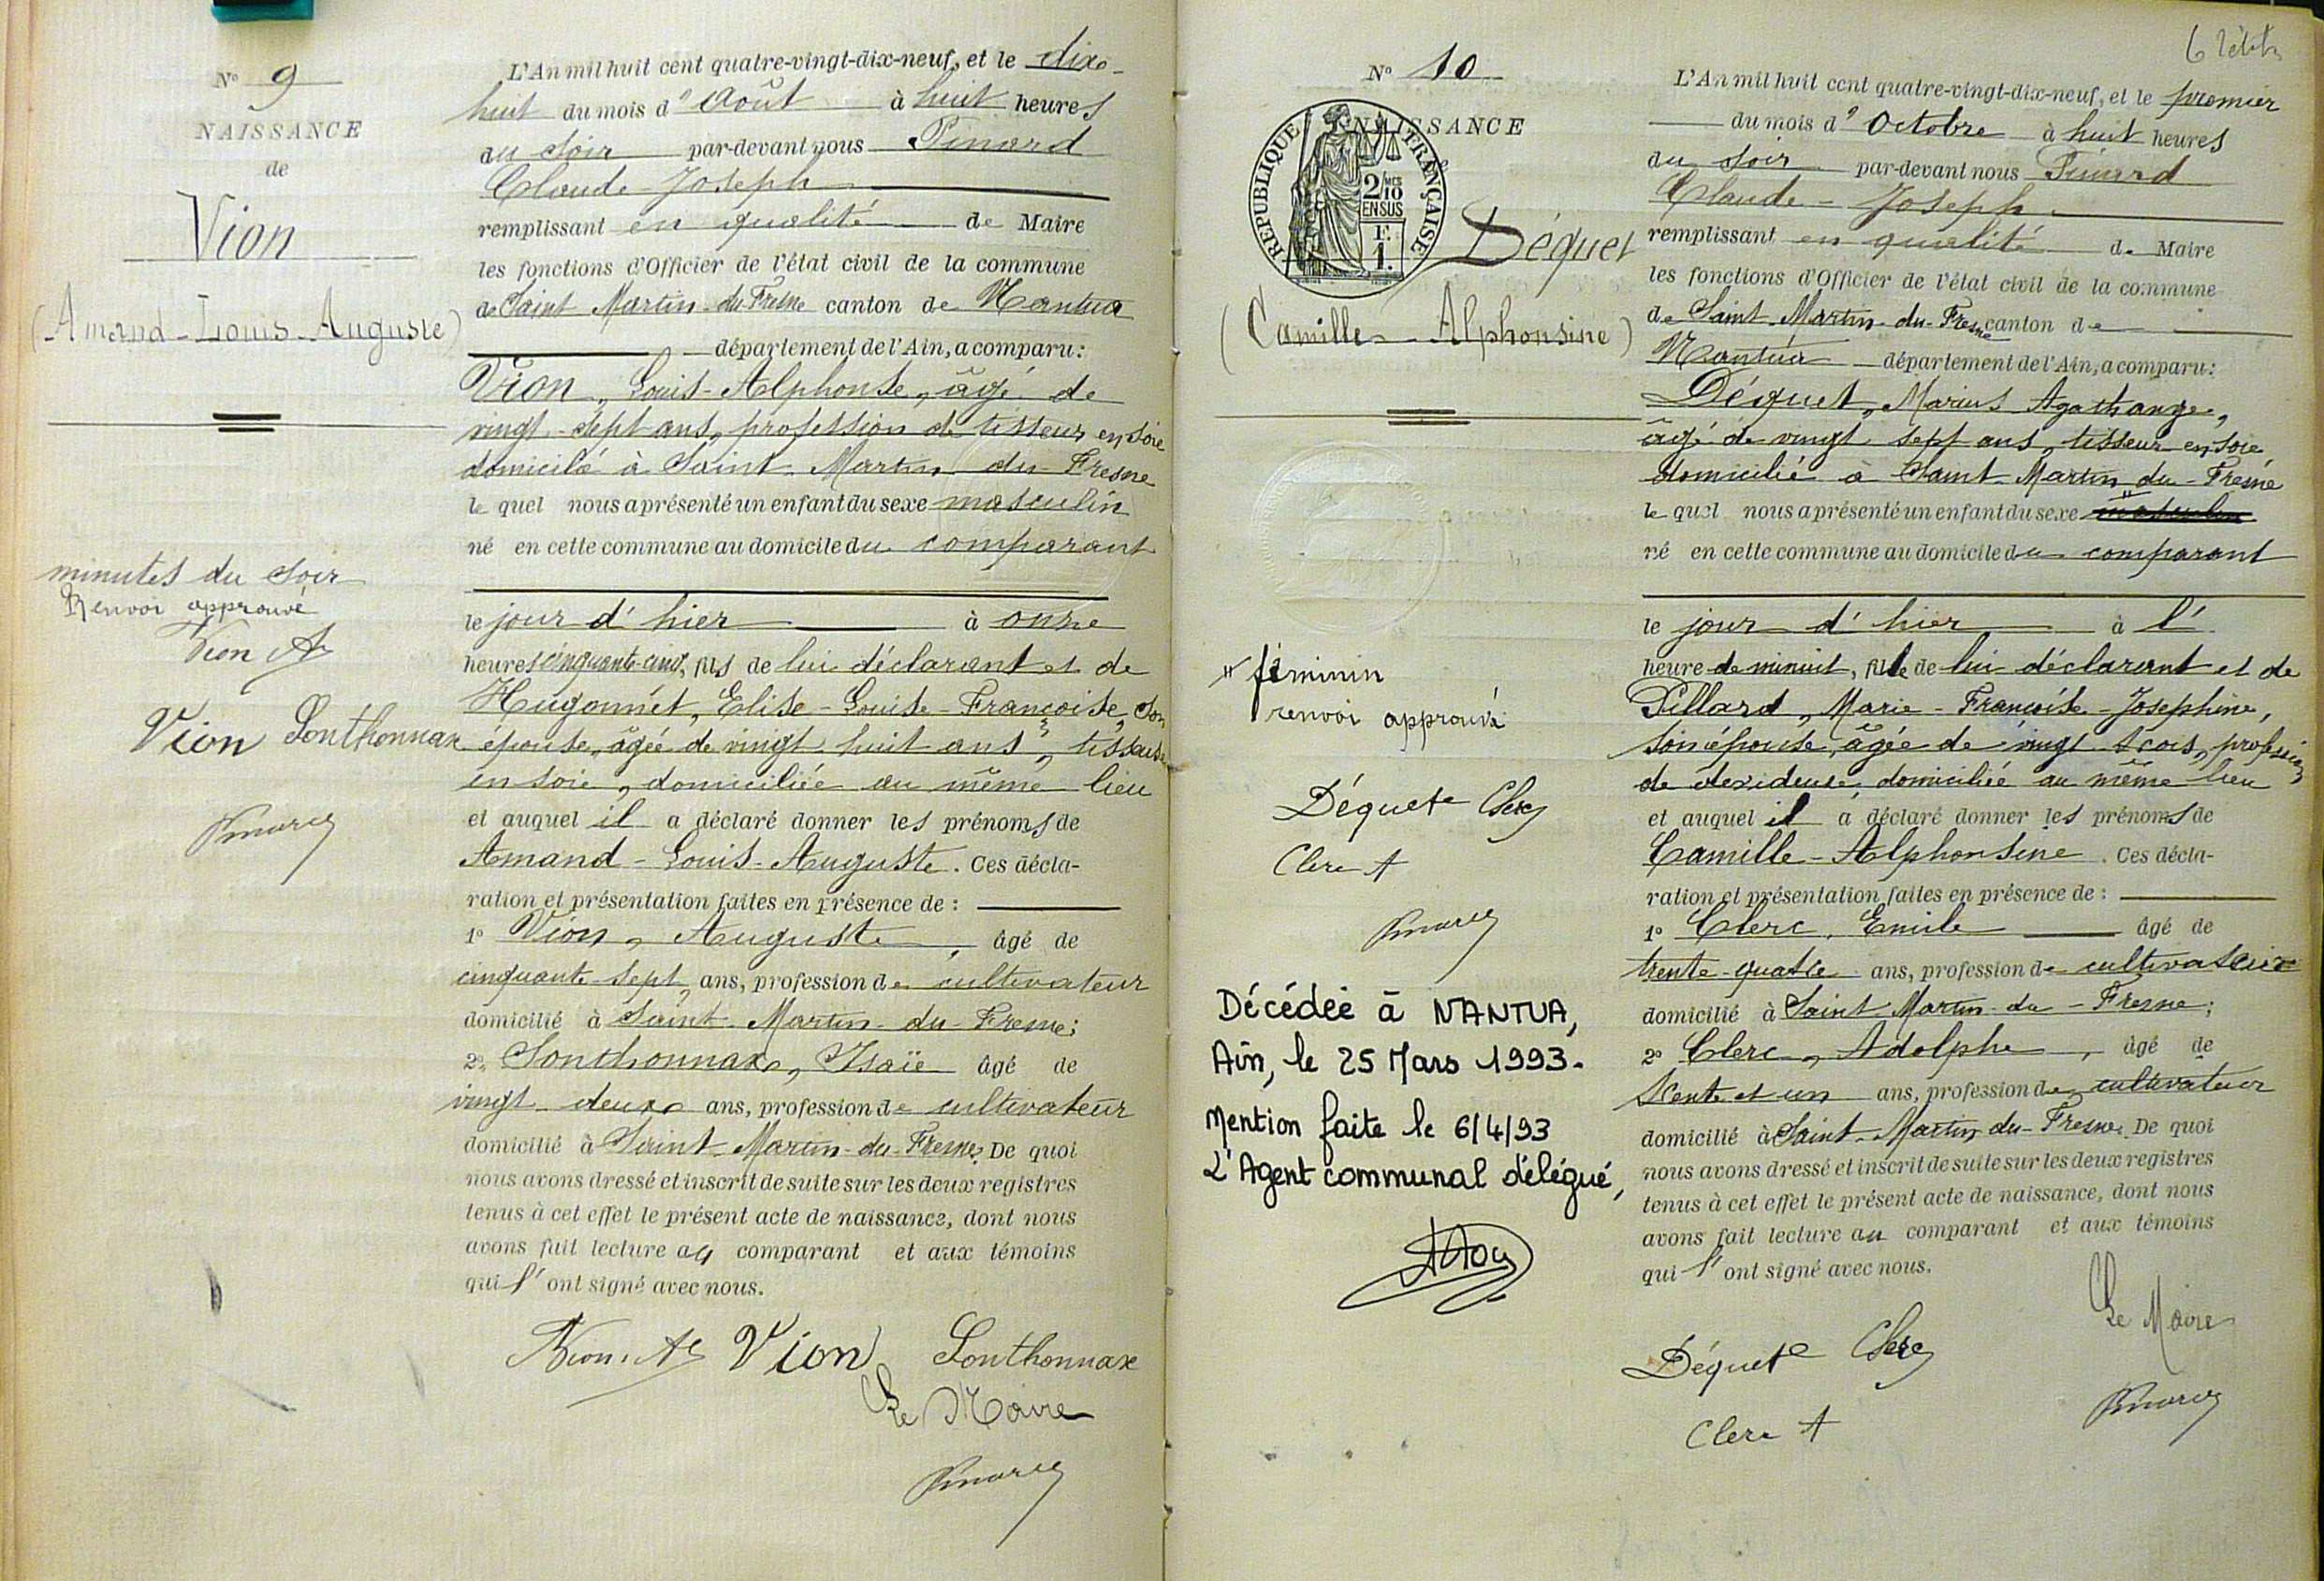 N° 9
NAISSANCE
de
Vion
(Amand-Louis-Auguste)
minutes du soir
Renvoi approuvé
Vion A
Vion Sonthonnax
L'An mil huit cent quatre-vingt-dix-neuf, et le dix-
huit du mois d' Août à huit heures
du soir par-devant nous Pinard
Claude-Joseph
remplissant en qualité de Maire
les fonctions d'Officier de l'état civil de la commune
de Saint Martin-du-Fresne canton de Nantua
département de l'Ain, a comparu:
Vion, Louis-Alphonse, âgé de
vingt-sept ans, profession de tisseur en soie
domicilé à Saint Martin-du-Fresne
le quel nous a présenté un enfant du sexe masculin
né en cette commune au domicile du comparant
le jour d'hier à onze
heures cinquante-cinq, fils de lui déclarant et de
Hugonnet, Elise-Louise-Françoise, son
épouse, âgée de vingt huit ans, tisseuse
en soie, domiciliée au même lieu
et auquel il a déclaré donner les prénoms de
Amand-Louis-Auguste. Ces décla-
ration et présentation faites en présence de :
1° Vion, Auguste, âgé de
cinquante-sept ans, profession de cultivateur
domicilié à Saint Martin-du-Fresne;
2° Sonthonnax, Isaïe âgé de
vingt-deux ans, profession de cultivateur
domicilié à Saint Martin-du-Fresne. De quoi
nous avons dressé et inscrit de suite sur les deux registres
tenus à cet effet le présent acte de naissance, dont nous
avons fait lecture au comparant et aux témoins
qui l' ont signé avec nous.
Vion Vion Sonthonnax
Le Maire
N° 10
NAISSANCE
REPUBLIQUE FRANÇAISE
2/10 MES
EN SUS
F.
1.
Déquet
(Camille-Alphonsine)
" féminin
renvoi approuvé
Déquet Clerc
Clerc A
Décédée à NANTUA,
Ain, le 25 Mars 1993.
Mention faite le 6/4/93
L'Agent communal délégué,
L'An mil huit cent quatre-vingt-dix-neuf, et le premier
du mois d' Octobre à huit heures
du soir par-devant nous Pinard
Claude-Joseph
remplissant en qualité de Maire
les fonctions d'Officier de l'état civil de la commune
de Saint Martin-du-Fresne canton de
Nantua département de l'Ain, a comparu:
Déquet, Marius Agathange,
âgé de vingt sept ans, tisseur en soie
domicilié à Saint Martin du-Fresne
le quel nous a présenté un enfant du sexe masculin "
né en cette commune au domicile du comparant
le jour d'hier à l'
heure de minuit, fille de lui déclarant et de
Pillard, Marie-Françoise-Josephine,
son épouse, âgée de vingt trois, profession
de dévideuse, domiciliée au même lieu
et auquel il a déclaré donner les prénoms de
Camille-Alphonsine. Ces décla-
ration et présentation faites en présence de :
1° Clerc, Emile âgé de
trente-quatre ans, profession de cultivateur
domicilié à Saint Martin-du-Fresne;
2° Clerc, Adolphe, âgé de
trente et un ans, profession de cultivateur
domicilié à Saint-Martin-du-Fresne. De quoi
nous avons dressé et inscrit de suite sur les deux registres
tenus à cet effet le présent acte de naissance, dont nous
avons fait lecture au comparant et aux témoins
qui l' ont signé avec nous.
Le Maire
Déquet Clerc
Clerc A